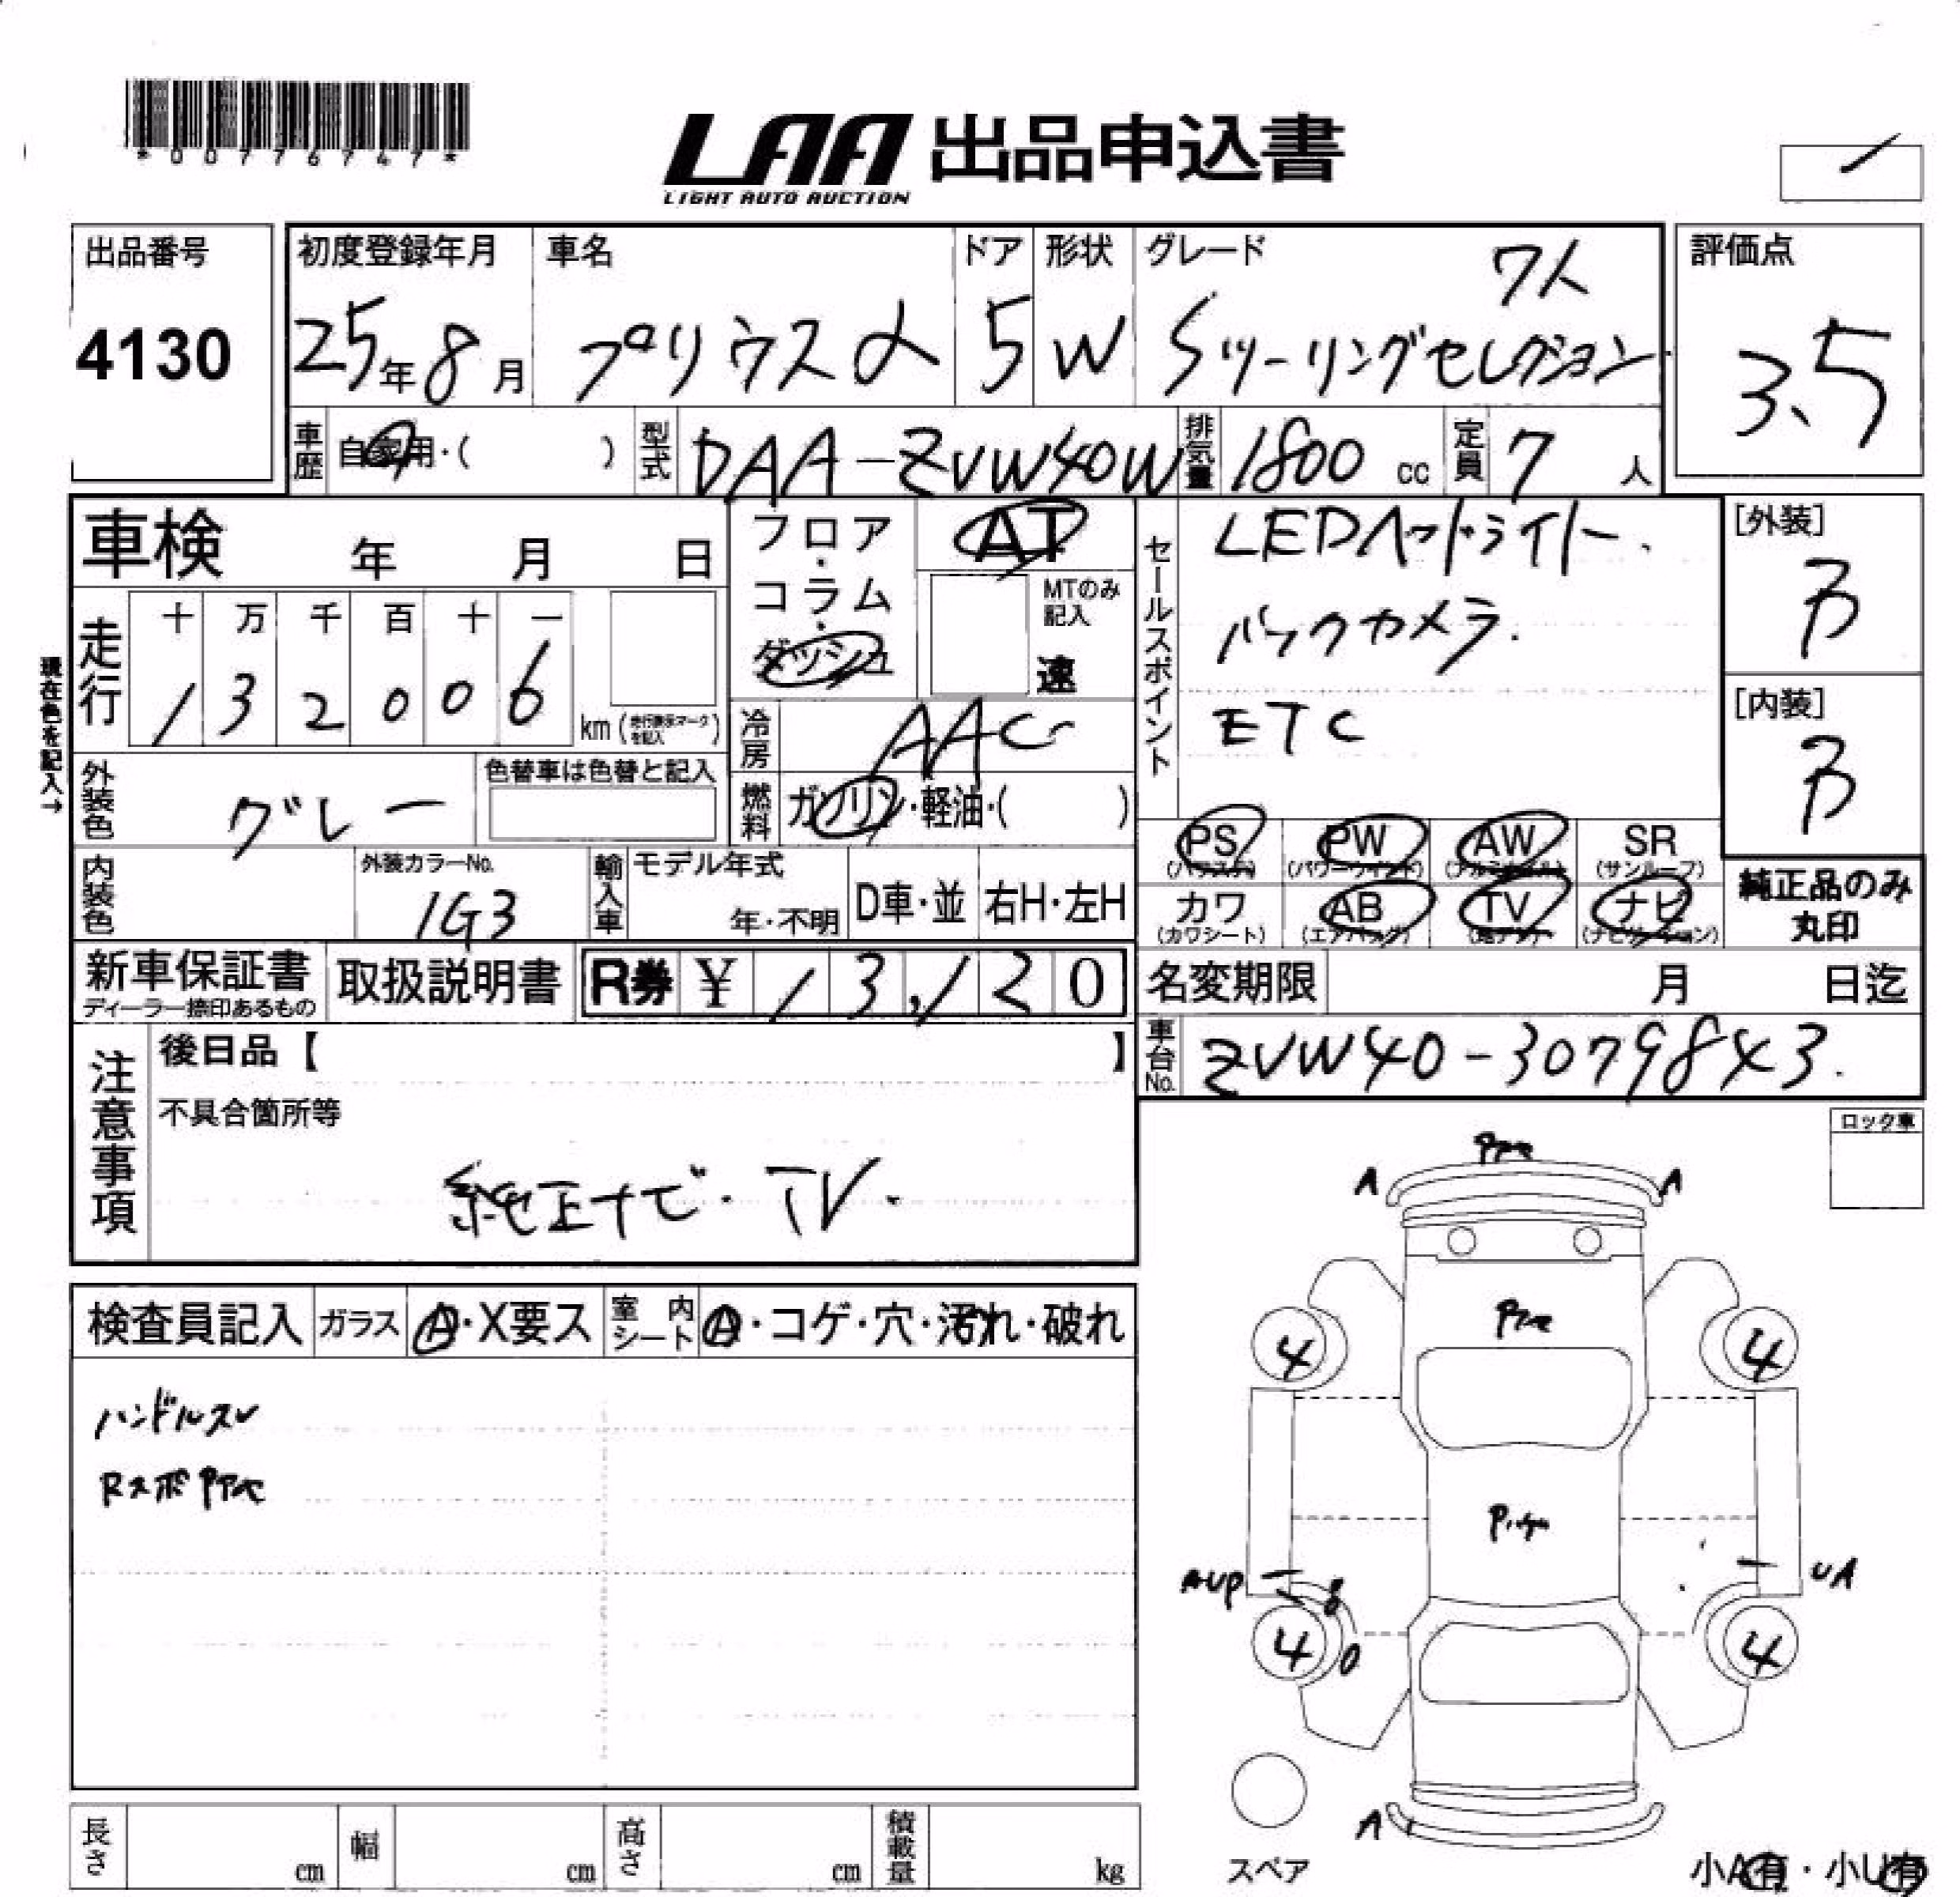 *00776747*
LAA 出品申込書
LIGHT AUTO AUCTION
出品番号
4130
初度登録年月
25年8月
車名
プリウスα
ドア
5
形状
W
グレード
7人
Sツーリングセレクション
評価点
3.5
車歴
自家用・( )
型式
DAA-ZVW40W
排気量
1800 cc
定員
7人
車検 年 月 日
現在色を記入→
走行
十 万 千 百 十 一
1 3 2 0 0 6
km (走行表示マークを記入)
フロア・コラム・ダッシュ
AT
MTのみ記入
速
冷房
AAC
燃料
ガソリン・軽油・( )
外装色
グレー
色替車は色替と記入
内装色
外装カラーNo.
1G3
輸入車
モデル年式
年・不明
D車・並
右H・左H
セールスポイント
LEDヘッドライト.
バックカメラ.
ETC
[外装]
B
[内装]
B
PS (パワステ)
PW (パワーウインド)
AW (アルミホイル)
SR (サンルーフ)
カワ (カワシート)
AB (エアバッグ)
TV (地デジ)
ナビ (ナビゲーション)
純正品のみ
丸印
新車保証書
ディーラー捺印あるもの
取扱説明書
R券 ¥ 1 3,1 2 0
名変期限 月 日迄
車台No.
ZVW40-3079843.
注意事項
後日品【 】
不具合箇所等
純正ナビ・TV.
ロック車
検査員記入
ガラス
A・X要ス
室内シート
A・コゲ・穴・汚れ・破れ
ハンドルスレ
A
A
4
4
AUP
UA
4
4
A
スペア
小A有・小U有
長さ cm
幅 cm
高さ cm
積載量 kg